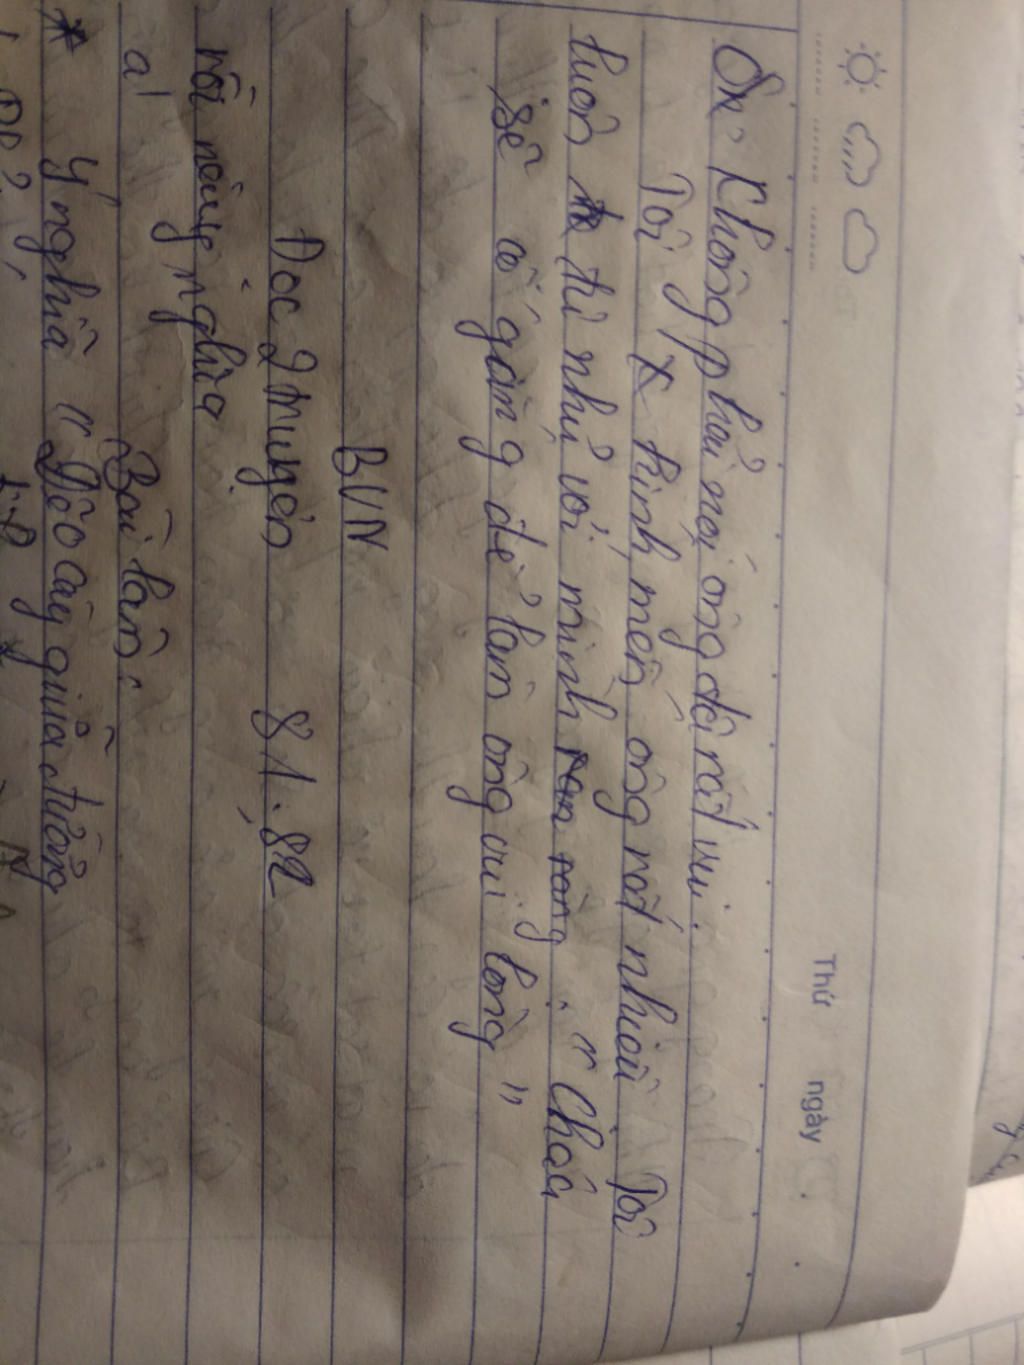 Thứ ngày
Sn: Không phải nói ông đã rất vui.
Tôi x kính mến ông rất nhiều. Tôi
luôn tự nhủ với mình rằng: "Cháu
sẽ cố gắng để làm ông vui lòng"
BVN
Đọc 2 truyện 81, 82
rồi nêu ý nghĩa
Bài làm:
a)
* Ý nghĩa "Đẽo cày giữa đường